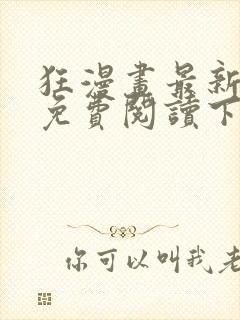 狂漫畫最新
免費閱讀下
你可以叫我老